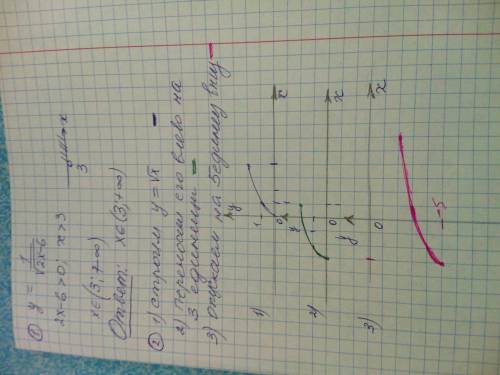 ① y = 1/√2x-6
2x-6>0; x>3
3 x
x∈(3;+∞)
Ответ: x∈(3;+∞)
② 1) строим y=√x
2) переносим его влево на
3 единицы
3) опускаем на 5 единиц вниз
1) y 1 0 1 x
2) y 1 0 1 x
3) y 0 x
-5